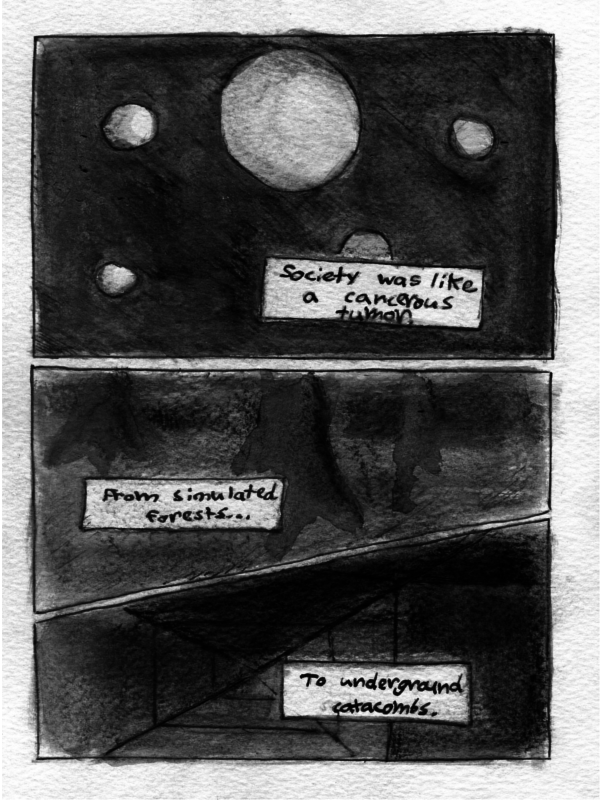 Society was like
a cancerous
tumor.
From simulated
forests...
To underground
catacombs.